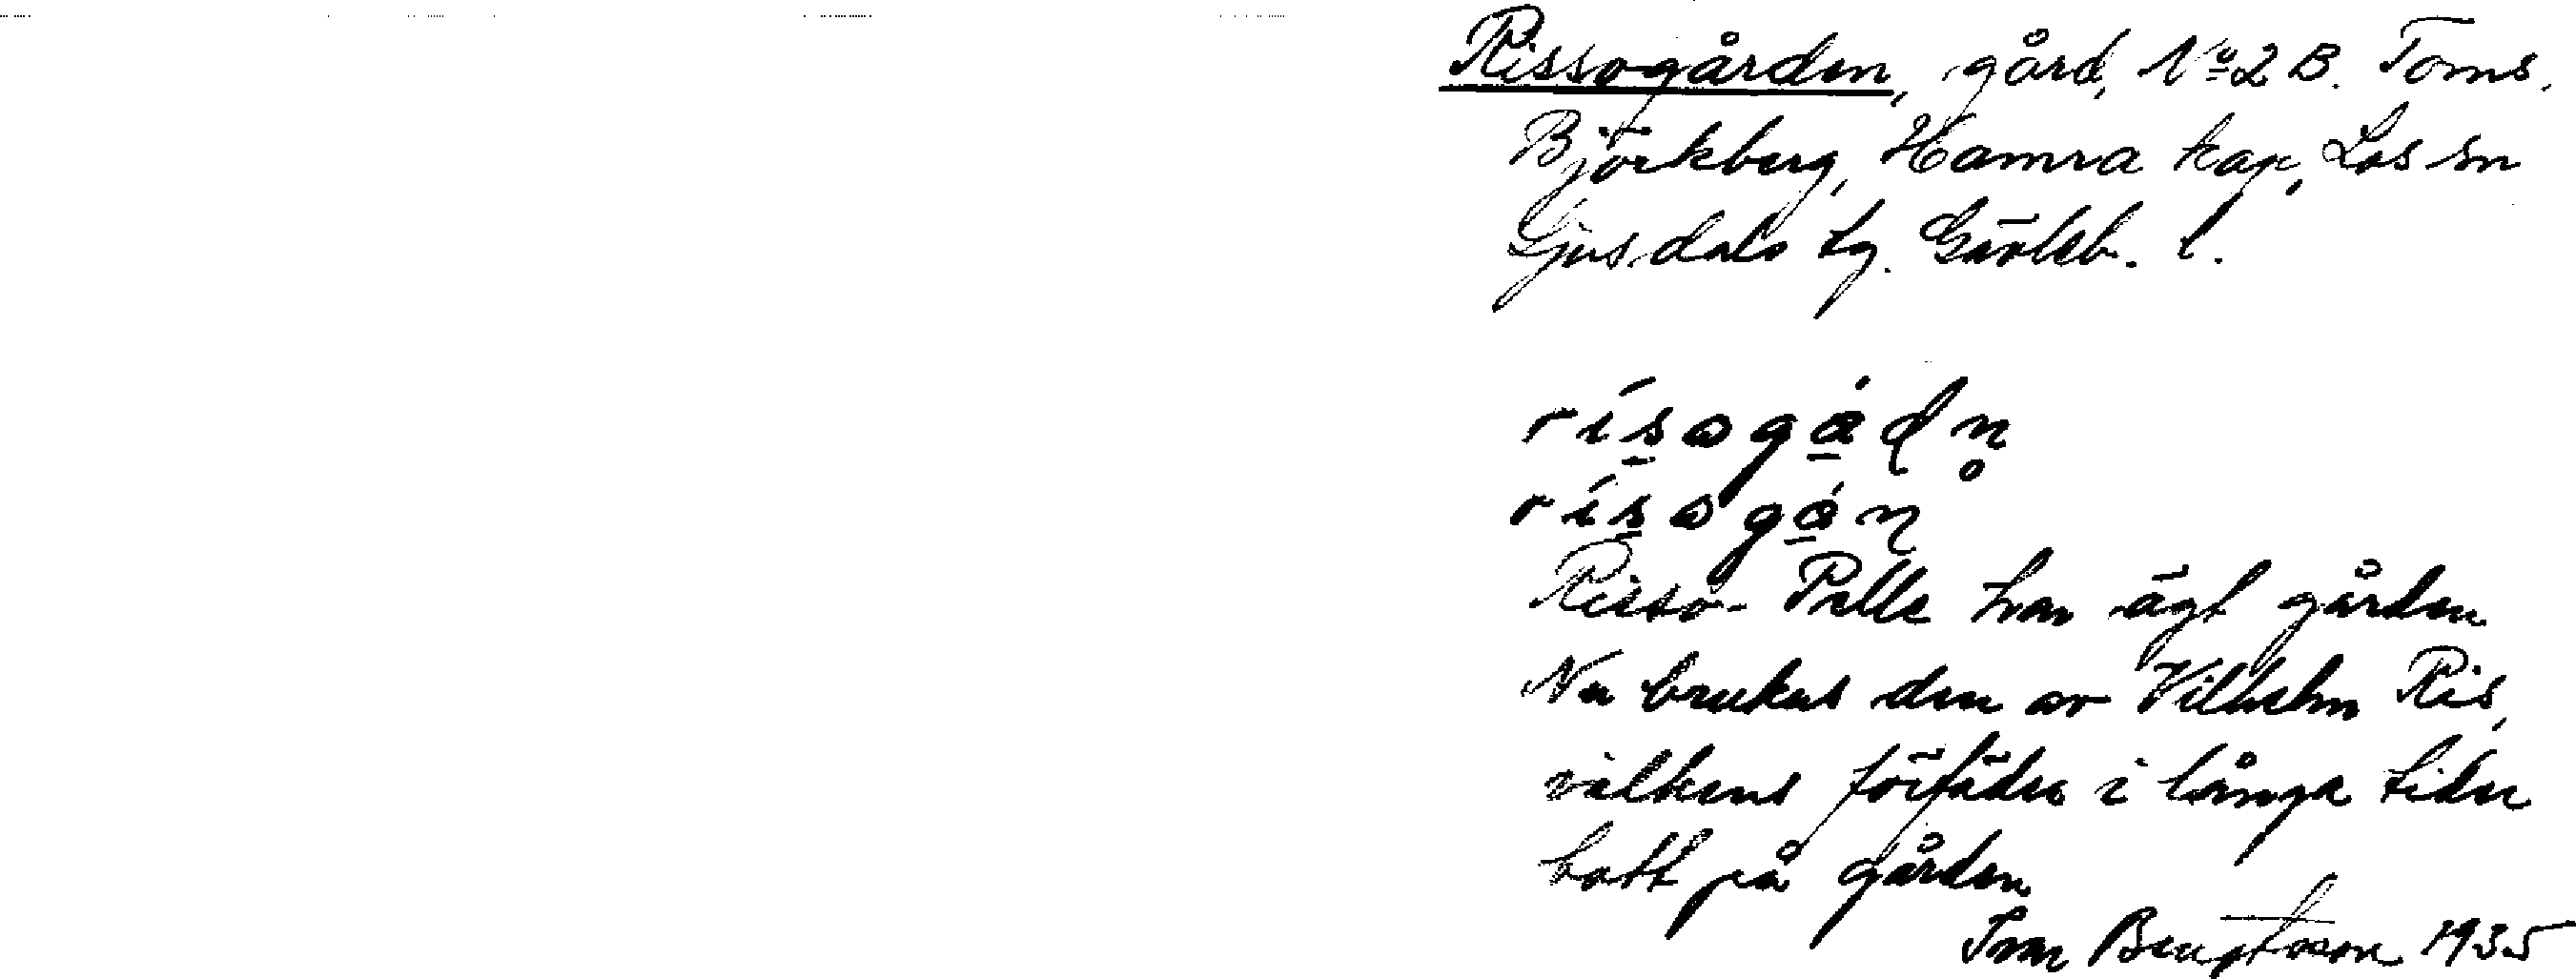 Rissogården, gård, No 2 B. Toms,
Björkberg, Hamra kap, Los sn
Ljusdals tg. Gävleb. l.
rísogådn̥
rísogån
Risso-Pelle har ägt gården
Nu brukas den av Vilhelm Ris,
vilkens förfäder i långa tider
bott på gården
Ivar Bengtsson 1935